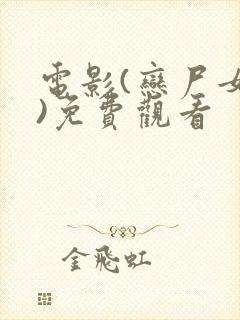 電影(戀尸女
)免費觀看
金飛虹